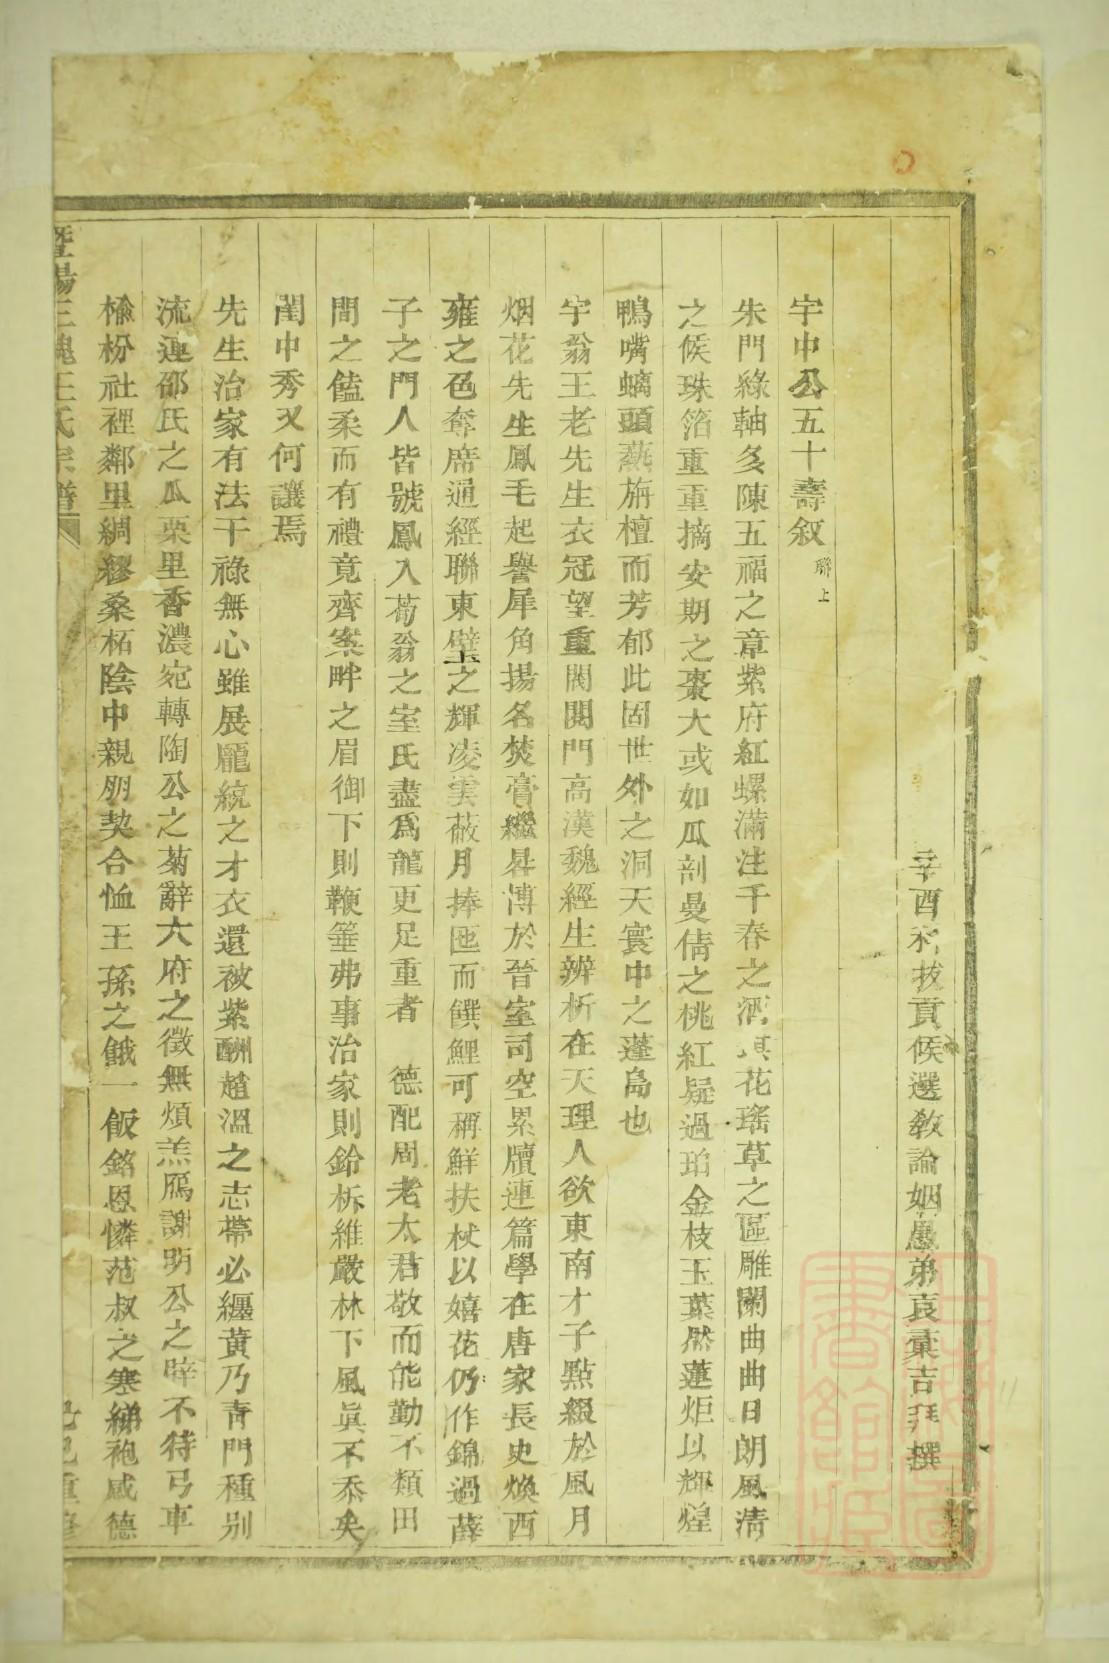 辛酉科拔貢候選教諭姻愚弟袁橐吉拜撰
宇中公五十壽叙 聯上
朱門綠軸多陳五福之章紫府紅螺滿注千春之酒琪花瑤草之區雕闌曲曲日朗風清
之候珠箔重重摘安期之棗大或如瓜剖曼倩之桃紅疑過珀金枝玉葉然蓮炬以輝煌
鴨嘴螭頭爇旃檀而芳郁此固世外之洞天寰中之蓬島也
宇翁王老先生衣冠望重閥閱門高漢魏經生辨析在天理人欲東南才子點綴於風月
烟花先生鳳毛起譽犀角揚名焚膏繼晷溥於晉室司空累牘連篇學在唐家長史煥西
雍之色奪席通經聯東壁之輝凌雲蔽月捧匜而饌鯉可稱鮮扶杖以嬉花仍作錦過薛
子之門人皆號鳳入荀翁之室氏盡爲龍更足重者 德配周老太君敬而能勤不類田
間之饁柔而有禮竟齊案畔之眉御下則鞭箠弗事治家則鈴柝維嚴林下風眞不忝矣
閨中秀又何讓焉
先生治家有法干祿無心雖展龐統之才衣還被紫酬趙溫之志帶必纏黃乃靑門種別
流連邵氏之瓜栗里香濃宛轉陶公之菊辭大府之徵無煩羔鴈謝明公之辟不待弓車
楡枌社裡鄰里綢繆桑柘陰中親朋契合恤王孫之餓一飯銘恩憐范叔之寒綈袍感德
暨陽三槐王氏宗譜 重修